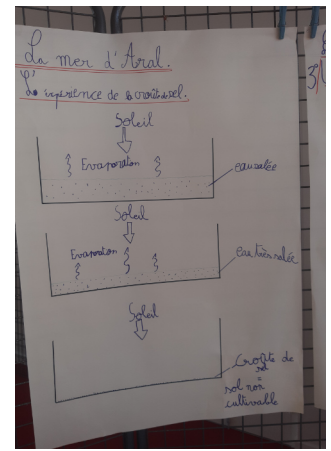 La mer d'Aral.
L'expérience de la croûte de sel.
Soleil
Evaporation
eau salée
Soleil
Evaporation
eau très salée
Soleil
Croûte de
sel
=
sol non
cultivable
3)